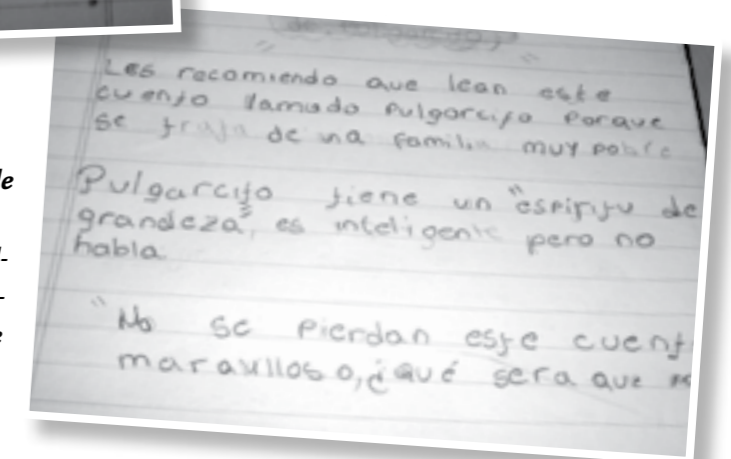 Les recomiendo que lean este
cuento llamado Pulgarcito Porque
se trata de una familia muy pobre
Pulgarcito tiene un "espiritu de
grandeza", es inteligente pero no
habla.
"No se Pierdan este cuent
maravilloso, ¿qué sera que